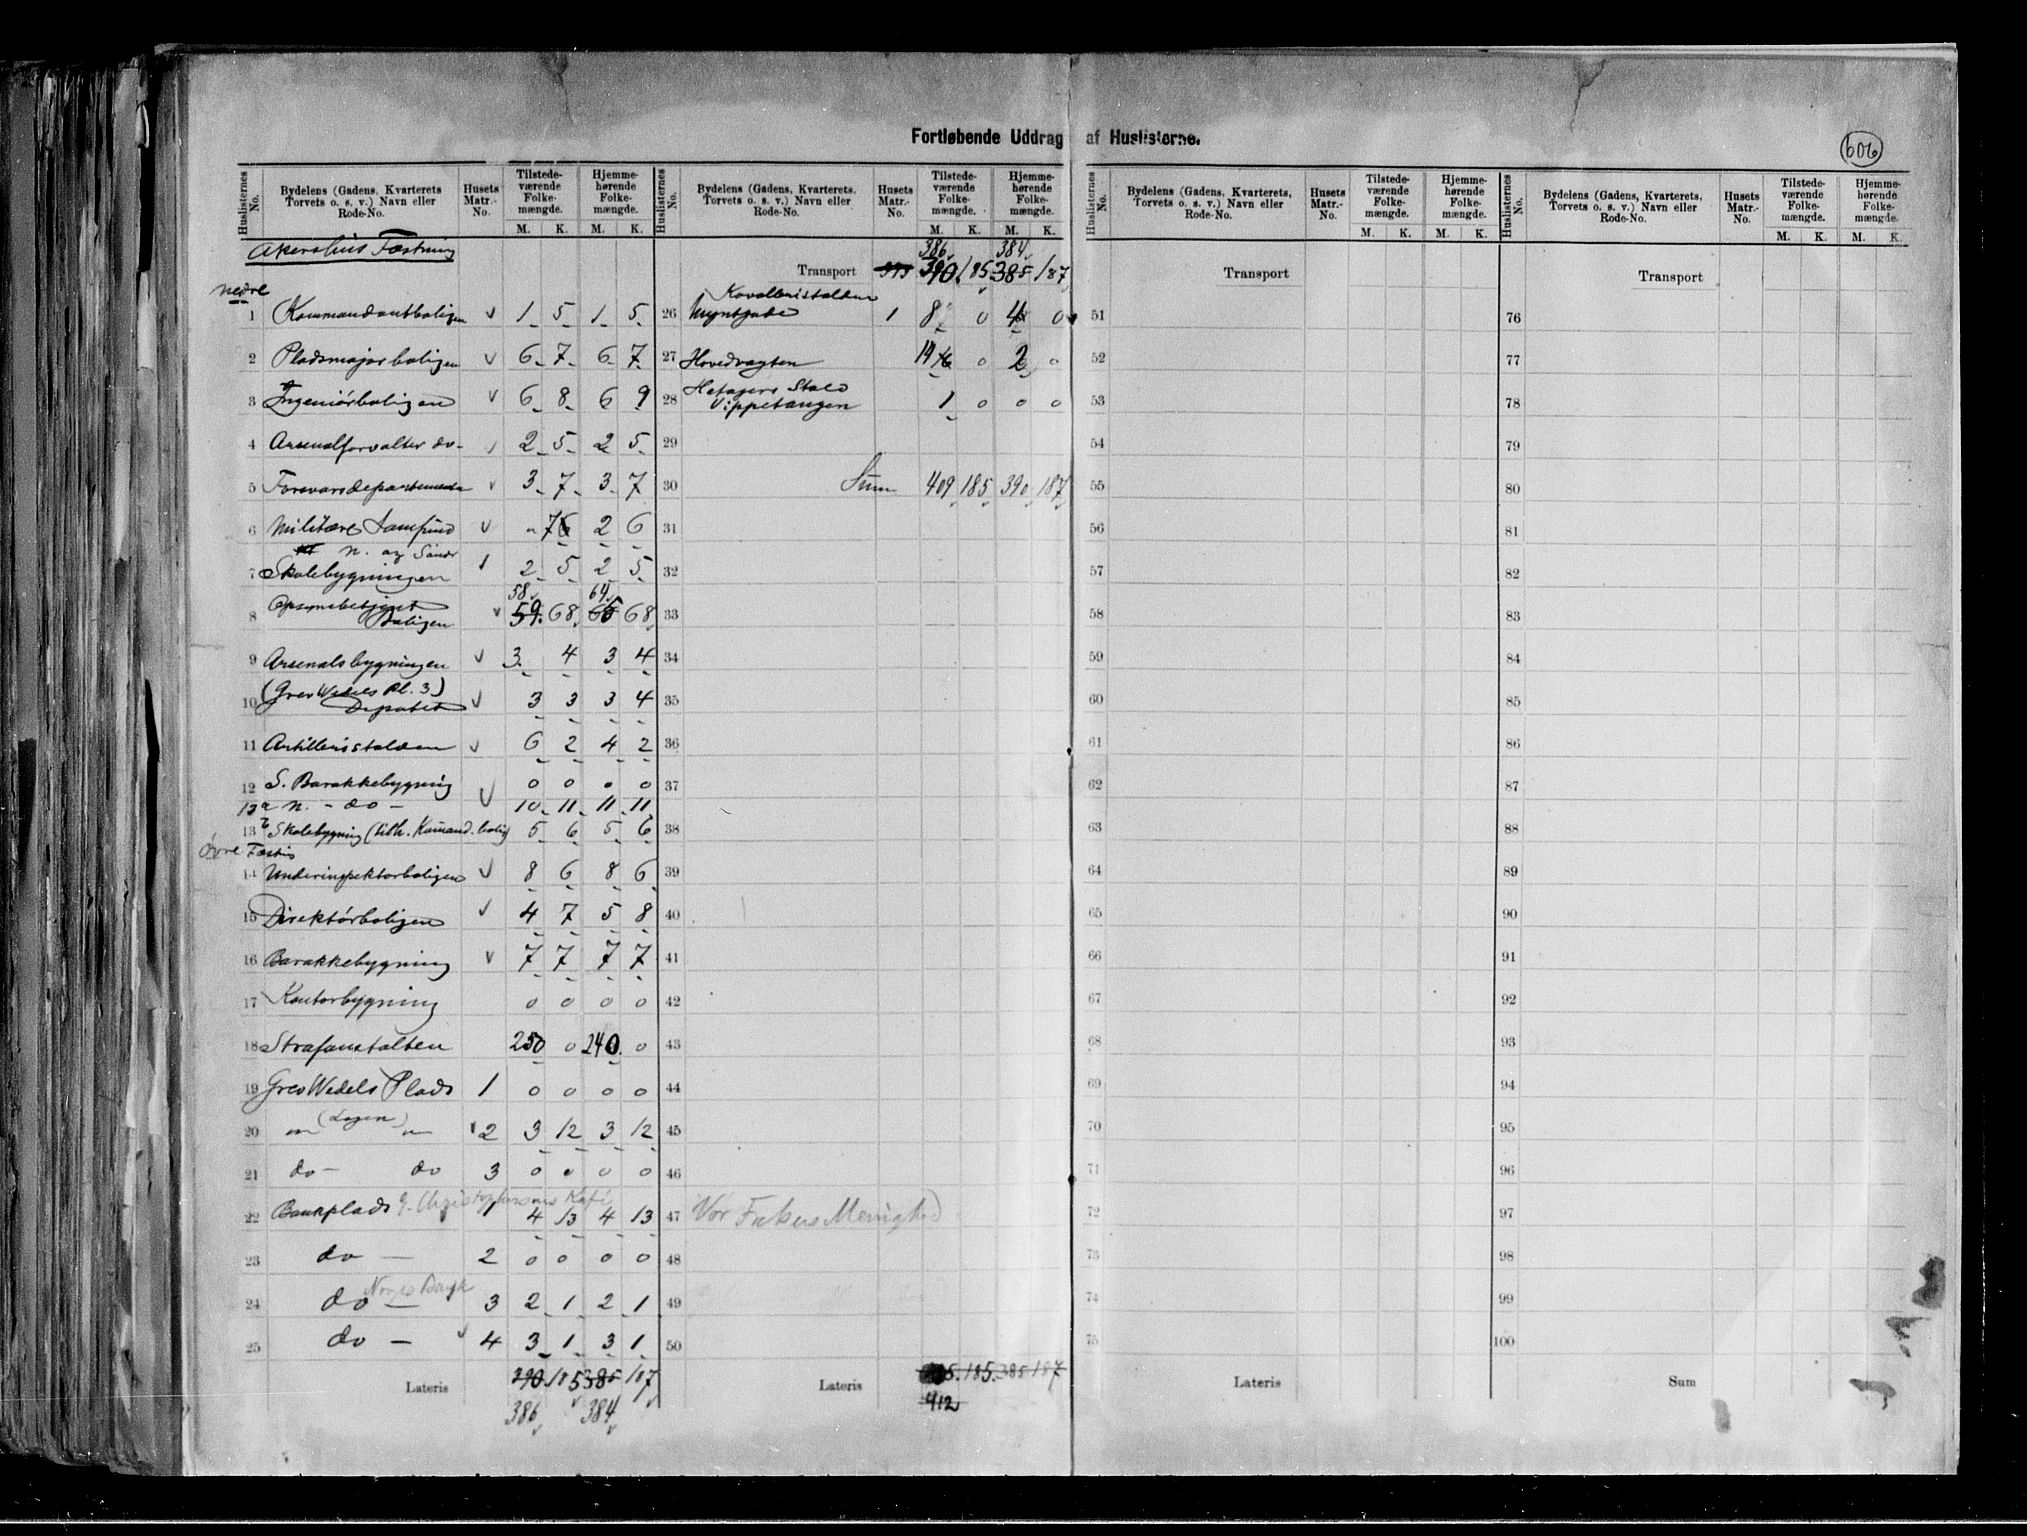 Fortløbende Uddrag af Huslisterne.
606
Huslisternes No. | Bydelens (Gadens, Kvarterets, Torvets o. s. v.) Navn eller Rode-No. | Husets Matr.-No. | Tilstede-værende Folke-mængde. M. K. | Hjemme-hørende Folke-mængde. M. K.
Akershus Fæstning
nedre
1 Kommandantboligen 1 5 1 5
2 Pladsmajorboligen 6 7 6 7
3 Ingeniörboligen 6 8 6 9
4 Arsenalforvalter do- 2 5 2 5
5 Forsvarsdepartementet 3 7 3 7
6 Militære Samfund " 7 2 6
n. og Söndr
7 Skolebygningen 2 5 2 5
58 64
8 Opsynsbetjent Boligen 59 68 65 68
9 Arsenalsbygningen 3 4 3 4
10 (Grev Wedels Pl. 3) Depotet 3 3 3 4
11 Artilleristalden 6 2 4 2
12 S. Barakkebygning 0 0 0 0
13 a N. - do - 10 11 11 11
13 b Skolebygning (tilh. Komand. bolig 5 6 5 6
övre Fæstn
14 Underinspektørboligen 8 6 8 6
15 Direktörboligen 4 7 5 8
16 Barakkebygning 7 7 7 7
17 Kontorbygning 0 0 0 0
18 Strafanstalten 250 0 240 0
19 Grev Wedels Plads 1 0 0 0 0
20 — (Logen) — 2 3 12 3 12
21 do - do 3 0 0 0 0
22 Bankplads 1 4 13 4 13
23 do — 2 0 0 0 0
24 do — Norges Bank 3 2 1 2 1
25 do — 4 3 1 3 1
Lateris 390 185 385 187
386 384
Huslisternes No. | Bydelens (Gadens, Kvarterets, Torvets o. s. v.) Navn eller Rode-No. | Husets Matr.-No. | Tilstede-værende Folke-mængde. M. K. | Hjemme-hørende Folke-mængde. M. K.
386 384
Transport 390 185 385 187
Kavalleristalden
26 Myntgade 1 8 0 4 0
27 Hovedvagten 14 0 2 0
28 Hefagers Stald Vippetangen 1 0 0 0
29
30 Sum 409 185 390 187
31
32
33
34
35
36
37
38
39
40
41
42
43
44
45
46
47 Vor Frelsers Menighed
48
49
50
Lateris 5. 185. 385 187
412
Huslisternes No. | Bydelens (Gadens, Kvarterets, Torvets o. s. v.) Navn eller Rode-No. | Husets Matr.-No. | Tilstede-værende Folke-mængde. M. K. | Hjemme-hørende Folke-mængde. M. K.
Transport
51
52
53
54
55
56
57
58
59
60
61
62
63
64
65
66
67
68
69
70
71
72
73
74
75
Lateris
Huslisternes No. | Bydelens (Gadens, Kvarterets, Torvets o. s. v.) Navn eller Rode-No. | Husets Matr.-No. | Tilstede-værende Folke-mængde. M. K. | Hjemme-hørende Folke-mængde. M. K.
Transport
76
77
78
79
80
81
82
83
84
85
86
87
88
89
90
91
92
93
94
95
96
97
98
99
100
Sum